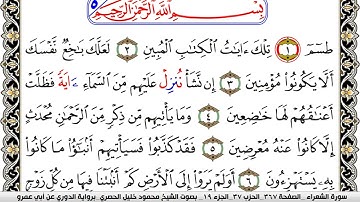 بِسْمِ اللَّهِ الرَّحْمَٰنِ الرَّحِيمِ
طسٓمٓ ١ تِلْكَ ءَايَٰتُ ٱلْكِتَٰبِ ٱلْمُبِينِ ٢ لَعَلَّكَ بَٰخِعٌ نَّفْسَكَ
أَلَّا يَكُونُوا۟ مُؤْمِنِينَ ٣ إِن نَّشَأْ نُنزِلْ عَلَيْهِم مِّنَ ٱلسَّمَآءِ ءَايَةً فَظَلَّتْ
أَعْنَٰقُهُمْ لَهَا خَٰضِعِينَ ٤ وَمَا يَأْتِيهِم مِّن ذِكْرٍ مِّنَ ٱلرَّحْمَٰنِ مُحْدَثٍ
إِلَّا كَانُوا۟ عَنْهُ مُعْرِضِينَ ٥ فَقَدْ كَذَّبُوا۟ فَسَيَأْتِيهِمْ أَنۢبَٰٓؤُا۟ مَا كَانُوا۟
بِهِۦ يَسْتَهْزِءُونَ ٦ أَوَلَمْ يَرَوْا۟ إِلَى ٱلْأَرْضِ كَمْ أَنۢبَتْنَا فِيهَا مِن كُلِّ زَوْجٍ
سورة الشعراء . الصفحة ٣٦٧ الحزب ٣٧ . الجزء ١٩ . بصوت الشيخ محمود خليل الحصري برواية الدوري عن أبي عمرو